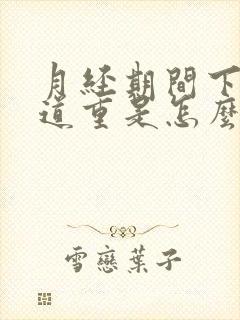 月经期間下
道重是怎麼
雪戀葉子